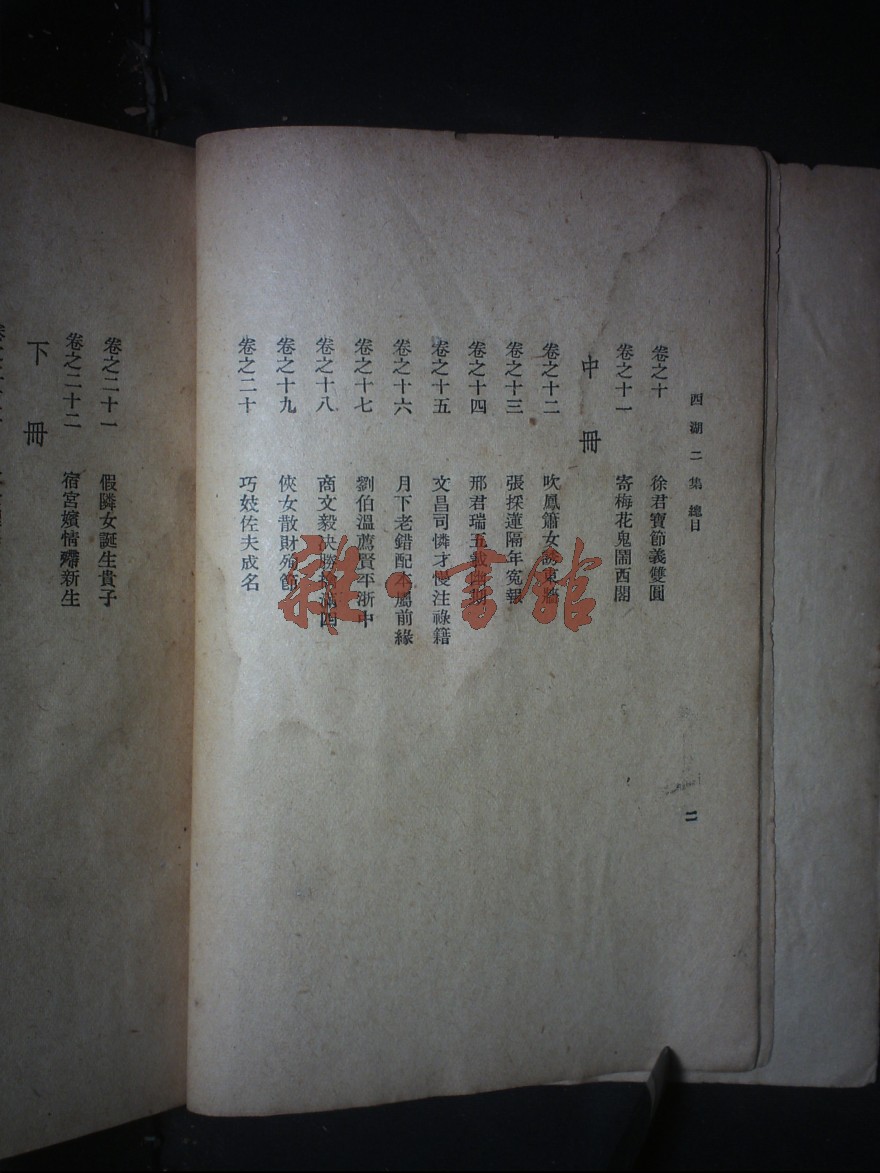 西湖二集 總目
卷之十 徐君寶節義雙圓
卷之十一 寄梅花鬼鬧西閣
中冊
卷之十二 吹鳳簫女誘東牆
卷之十三 張採蓮隔年冤報
卷之十四 邢君瑞五載幽期
卷之十五 文昌司憐才慢注祿籍
卷之十六 月下老錯配本屬前緣
卷之十七 劉伯溫薦賢平浙中
卷之十八 商文毅決勝擒滿四
卷之十九 俠女散財殉節
卷之二十 巧妓佐夫成名
二
卷之二十一 假隣女誕生貴子
卷之二十二 宿宮嬪情殢新生
下冊
雜·書館